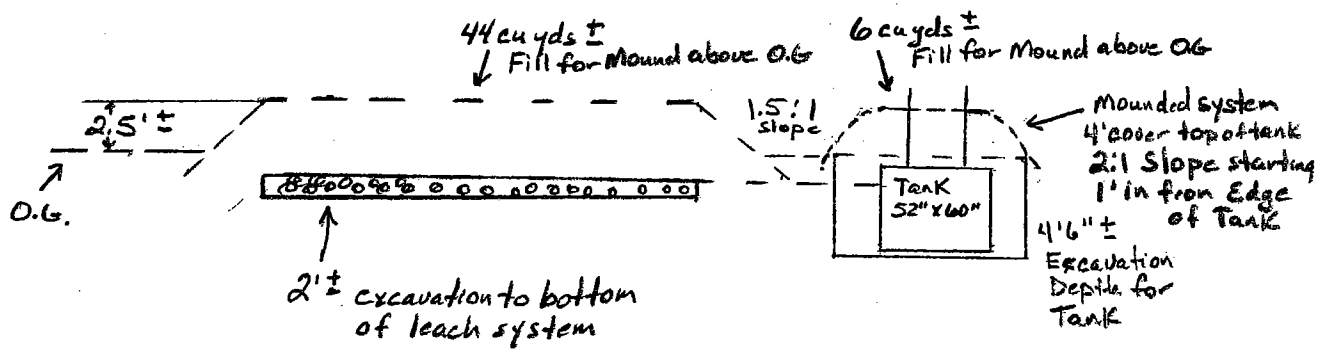 44 cu yds ±
Fill for Mound above O.G
6 cu yds ±
Fill for Mound above O.G
2.5' ±
O.G.
1.5:1
slope
Mounded system
4' cover top of tank
2:1 Slope starting
1' in from Edge
of Tank
Tank
52" x 60"
4'6" ±
Excavation
Depth for
Tank
2' ± excavation to bottom
of leach system